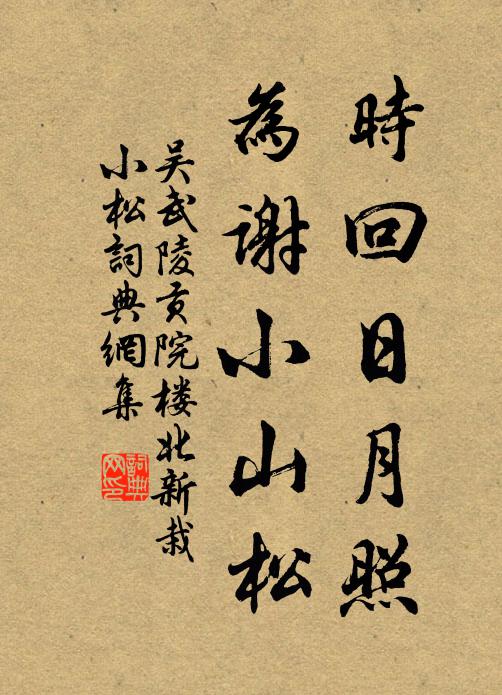 時回日月照
為謝小山松
吴武陵贡院楼北新栽
小松詞典網集
詞典网印